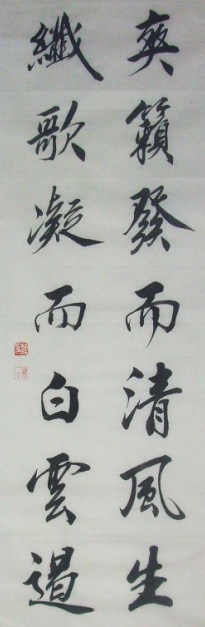 爽籟發而清風生
纖歌凝而白雲遏